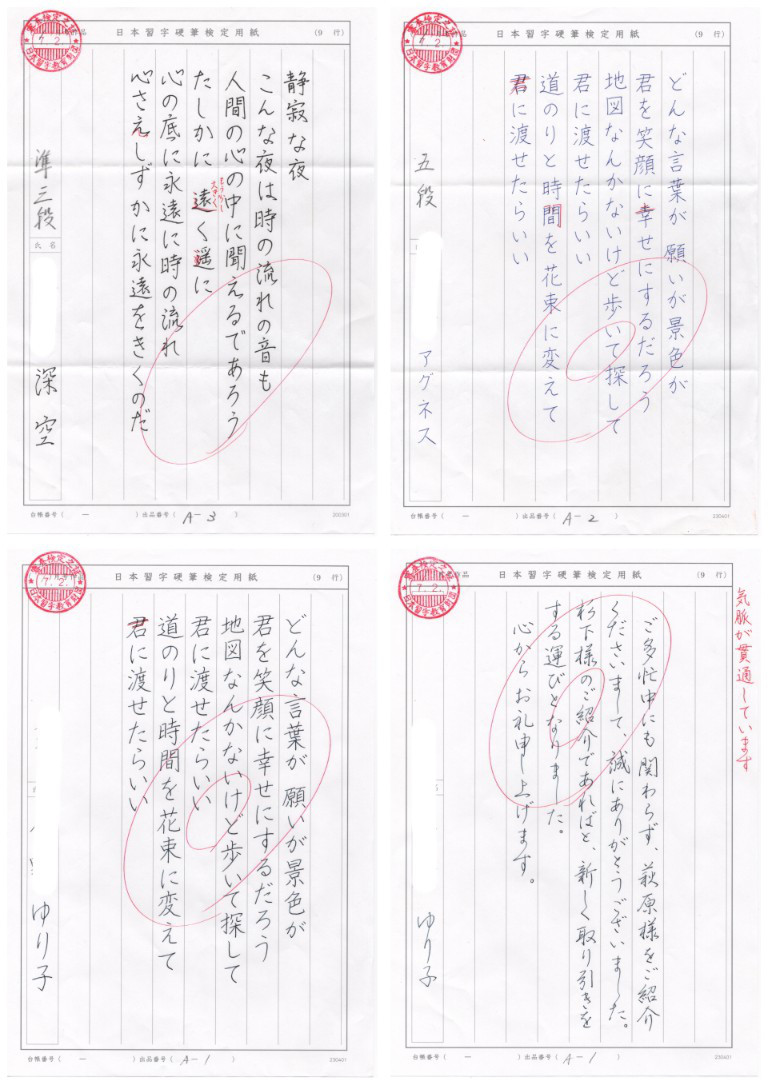 日本習字硬筆検定用紙
(9 行)
7.2.
日本習字教育財団
静寂な夜
こんな夜は時の流れの音も
人間の心の中に聞えるであろう
たしかに遠く遥に
心の底に永遠に時の流れ
心さえしずかに永遠をきくのだ
準三段
氏名
深空
台帳番号( ー )出品番号( A-3 )
230401
日本習字硬筆検定用紙
(9 行)
7.2.
日本習字教育財団
どんな言葉が 願いが景色が
君を笑顔に幸せにするだろう
地図なんかないけど歩いて探して
君に渡せたらいい
道のりと時間を花束に変えて
君に渡せたらいい
五段
アグネス
台帳番号( ー )出品番号( A-2 )
230401
日本習字硬筆検定用紙
(9 行)
7.2.
日本習字教育財団
どんな言葉が 願いが景色が
君を笑顔に幸せにするだろう
地図なんかないけど歩いて探して
君に渡せたらいい
道のりと時間を花束に変えて
君に渡せたらいい
ゆり子
台帳番号( ー )出品番号( A-1 )
230401
日本習字硬筆検定用紙
(9 行)
7.2.
日本習字教育財団
気脈が貫通しています
ご多忙中にも関わらず、萩原様をご紹介
くださいまして、誠にありがとうございました。
杉下様のご紹介であればと、新しく取り引きを
する運びとなりました。
心からお礼申し上げます。
ゆり子
台帳番号( ー )出品番号( A-1 )
230401